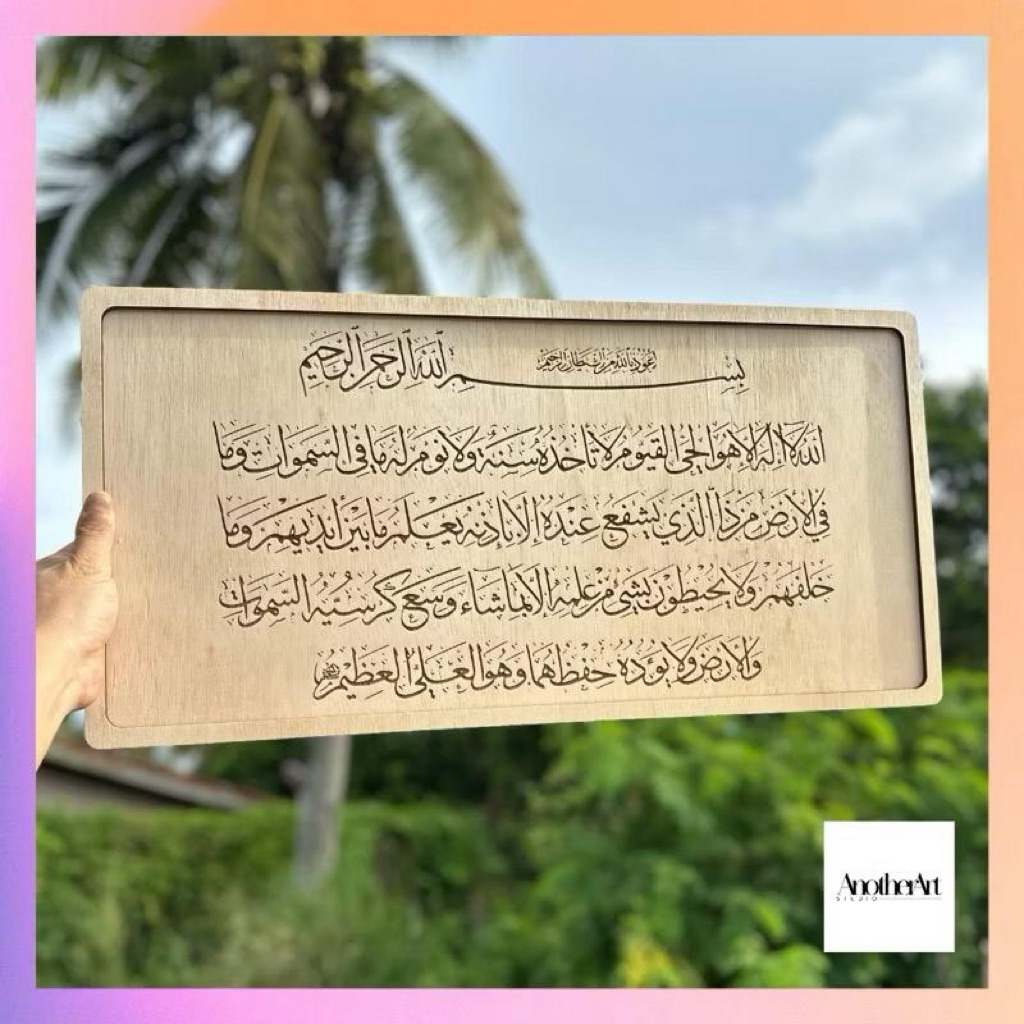 بسم الله الرحمن الرحيم
اعوذ بالله من الشيطان الرجيم
الله لا اله الا هو الحي القيوم لا تأخذه سنة ولا نوم له ما في السموات وما
في الارض من ذا الذي يشفع عنده الا باذنه يعلم ما بين أيديهم وما
خلفهم ولا يحيطون بشيء من علمه الا بما شاء وسع كرسيه السموات
والارض ولا يؤده حفظهما وهو العلي العظيم
AnotherArt
STUDIO